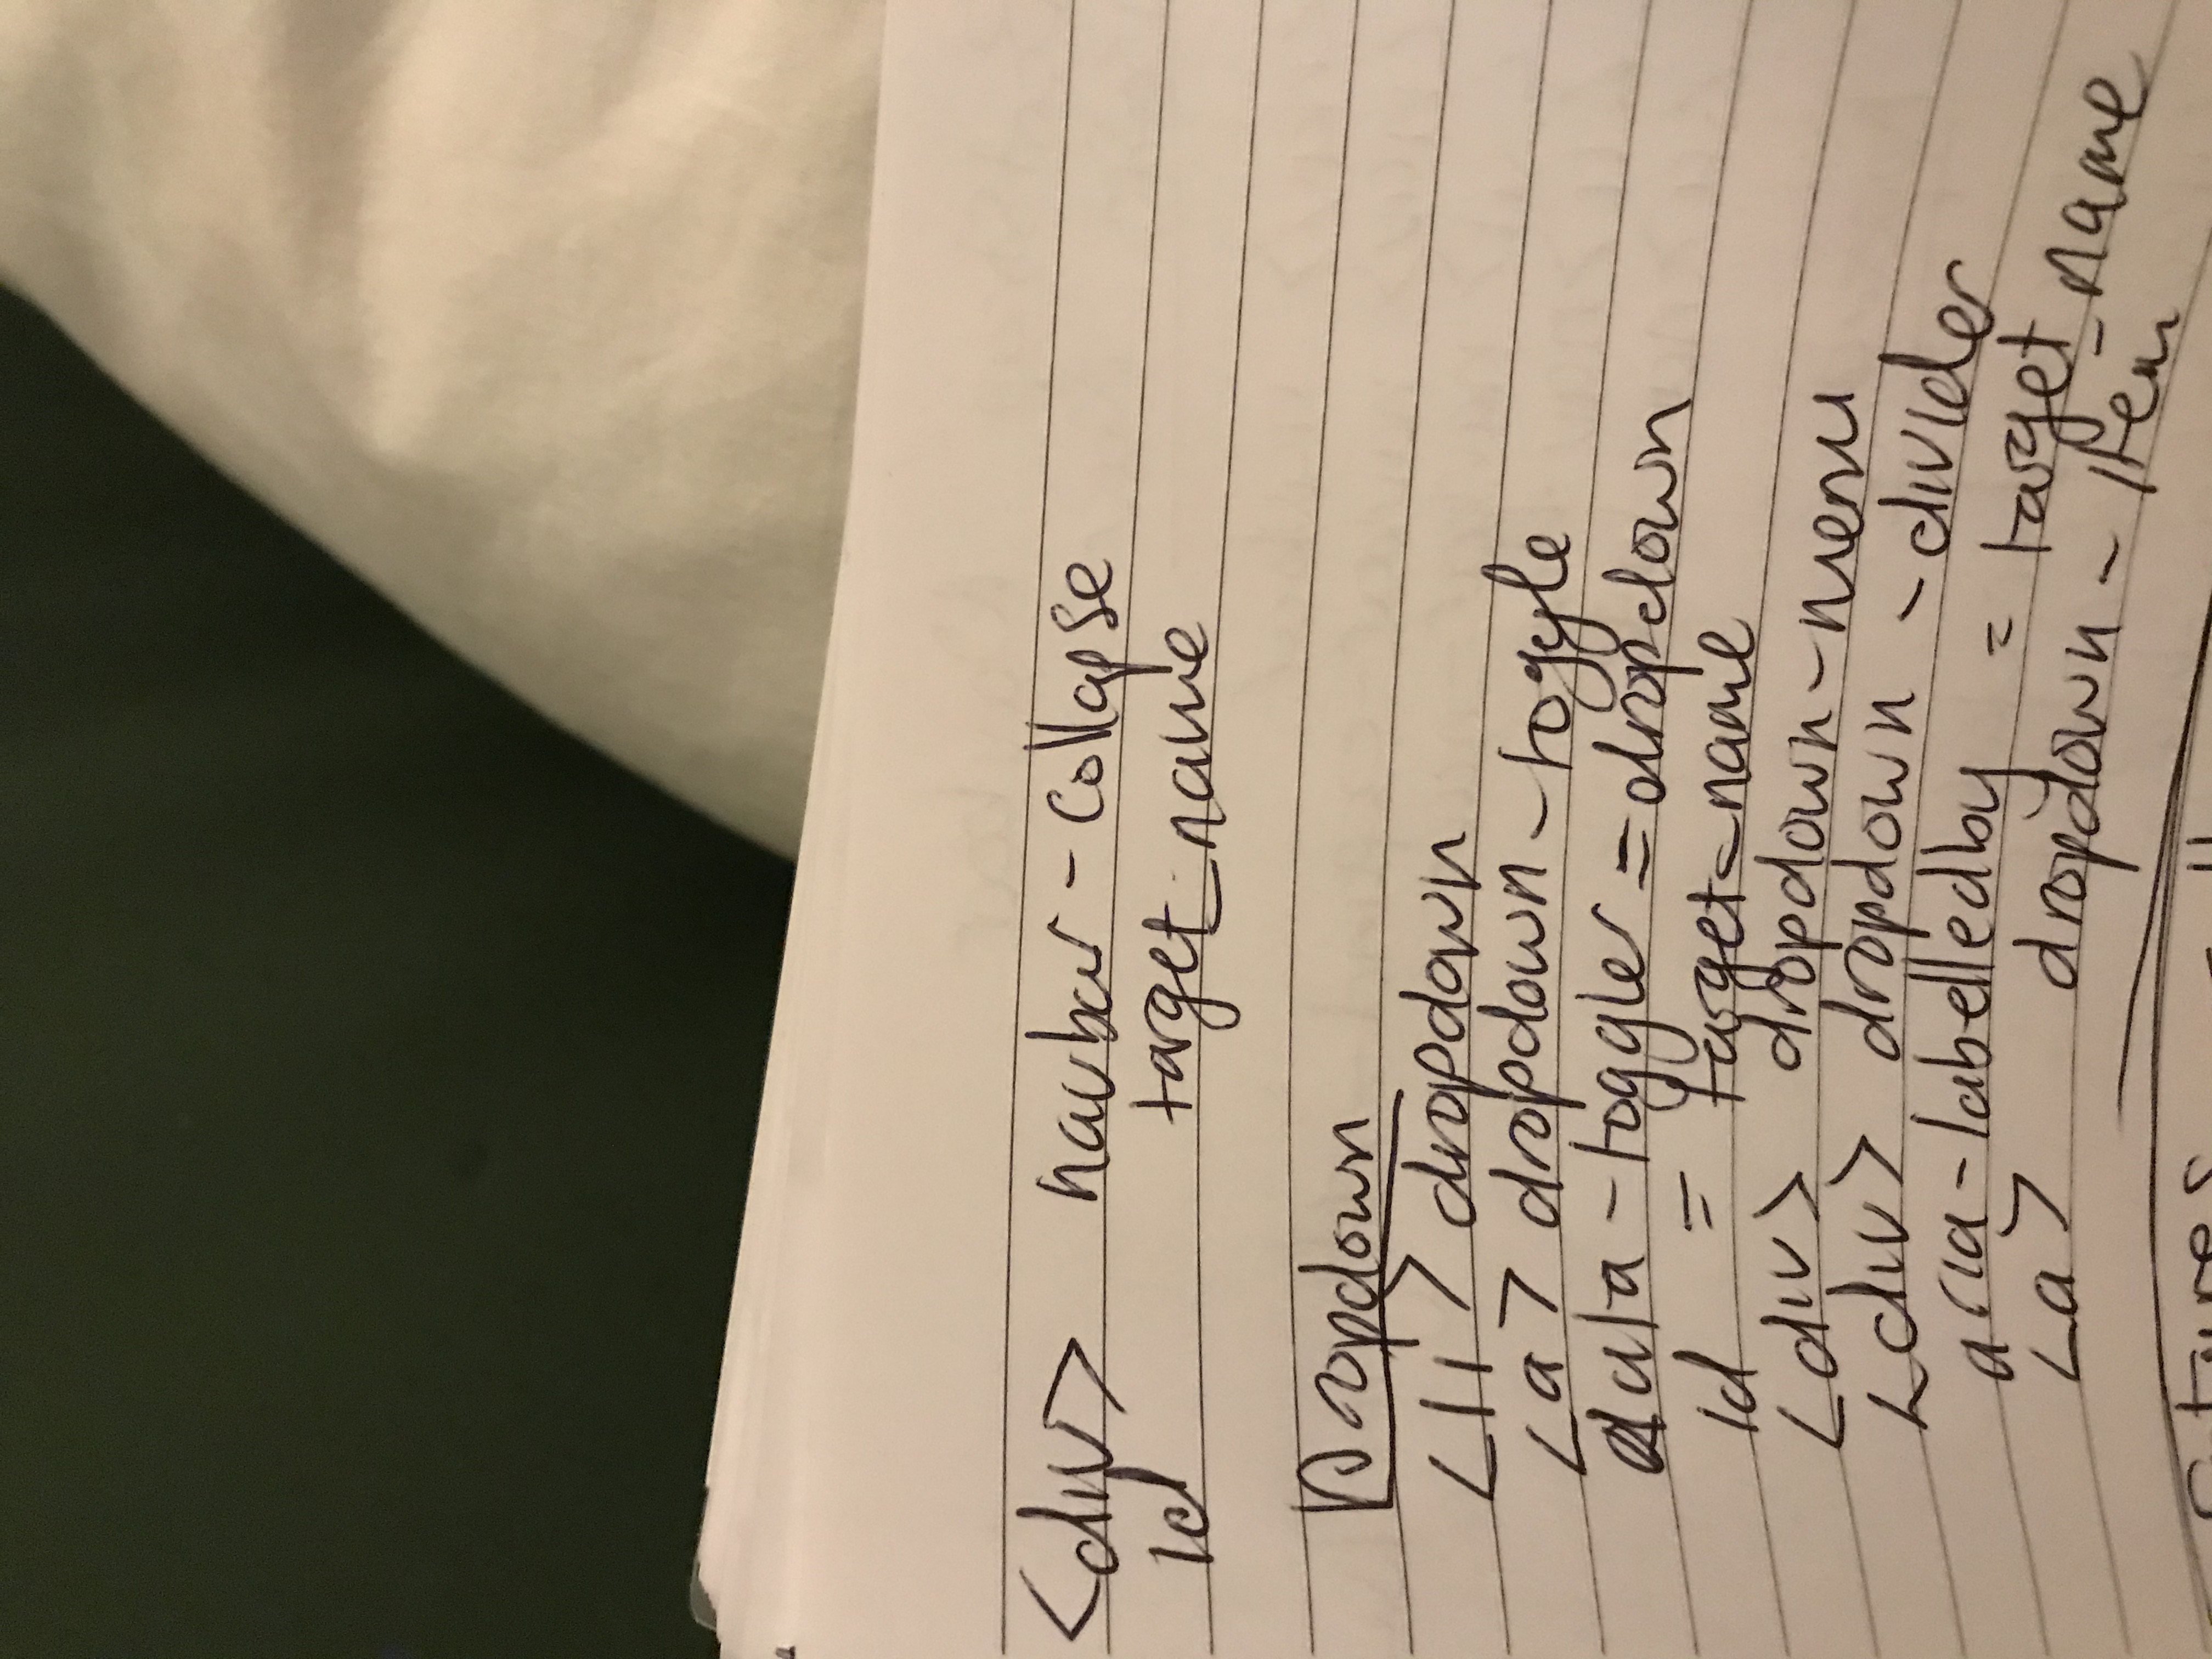 <div> navbar-collapse
id target_name
Dropdown
<li> dropdown
<a> dropdown-toggle
data-toggler = dropdown
id = target_name
<div> dropdown-menu
<div> dropdown-divider
aria-labelledby = target_name
<a> dropdown-item